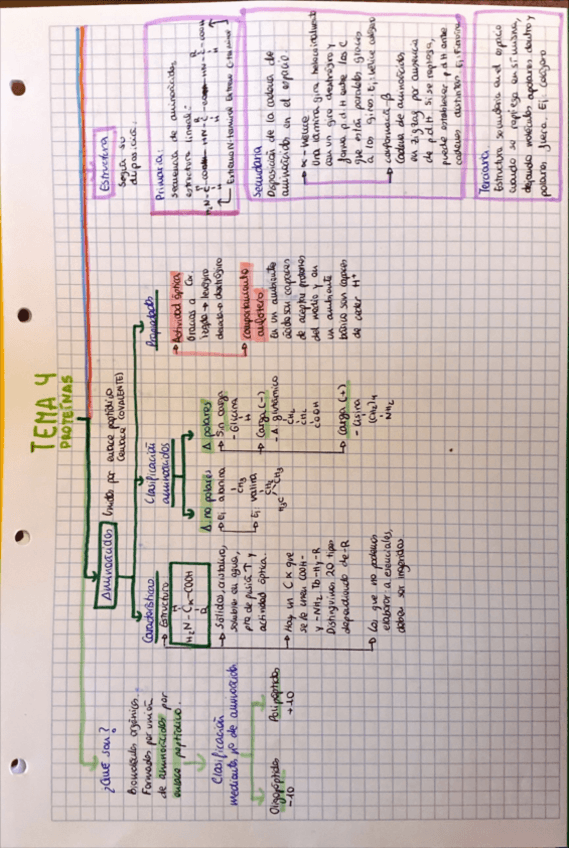 TEMA 4
PROTEÍNAS
¿Qué son?
Biomolécula orgánica.
Formadas por unión
de aminoácidos por
enlace peptídico.
Clasificación
mediante nº de aminoácidos
Oligopéptidos
-10
Polipéptidos
+10
Aminoácidos
Unidos por enlace peptídico
(enlace COVALENTE)
Características
→ Estructura
H
H₂N-Cα-COOH
R
→ Sólidos, cristalino,
soluble en agua,
pto de fusión ↑ y
actividad óptica.
→ Hay un Cα que
se le unen COOH-
y -NH₂
Distinguimos 20 tipos
dependiendo de -R
→ Los que no podemos
elaborar → esenciales,
deben ser ingeridos
Clasificación
aminoácidos
Δ no polares
→ Ej alanina
CH₃
→ Ej valina
CH
H₃C CH₃
Δ polares
→ Sin carga
- Glicina
H
→ Carga (-)
- A glutámico
CH₂
CH₂
COOH
→ Carga (+)
- Lisina
(CH₂)₄
NH₂
Propiedades
→ Actividad óptica
Gracias a Cα.
izqda → levógiro
derecha → dextrógiro
→ Comportamiento
anfótero
En un ambiente
ácido son capaces
de aceptar protones
del medio y en
un ambiente
básico son capaces
de ceder H⁺
Estructura
Según su
disposición.
Primaria:
secuencia de aminoácidos
estructura lineal:
Extremo N-terminal Extremo C-terminal
Secundaria
Disposición de la cadena de
aminoácidos en el espacio.
→ α-Hélice
Una lámina gira helicoidalmente
con un giro dextrógiro y
forma p.d.H entre los C
que están paralelos gracias
a los giros. Ej: Hélice colágeno
→ conformación-β
Cadena de aminoácidos
en zigzag por ausencia
de p.d.H. Si se repliega,
puede establecer p.d.H entre
cadenas distintas. Ej: Fibroína
Terciaria.
Estructura secundaria en el espacio
cuando se repliega en sí misma,
dejando moléculas apolares dentro y
polares fuera. Ej: